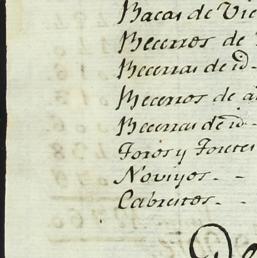 Bacas de Vie
Becerros de
Becerras de id.-
Becerros de a
Becerras de id.-
Toros y Toretes
Noviyos. - -
Cabreitos. -